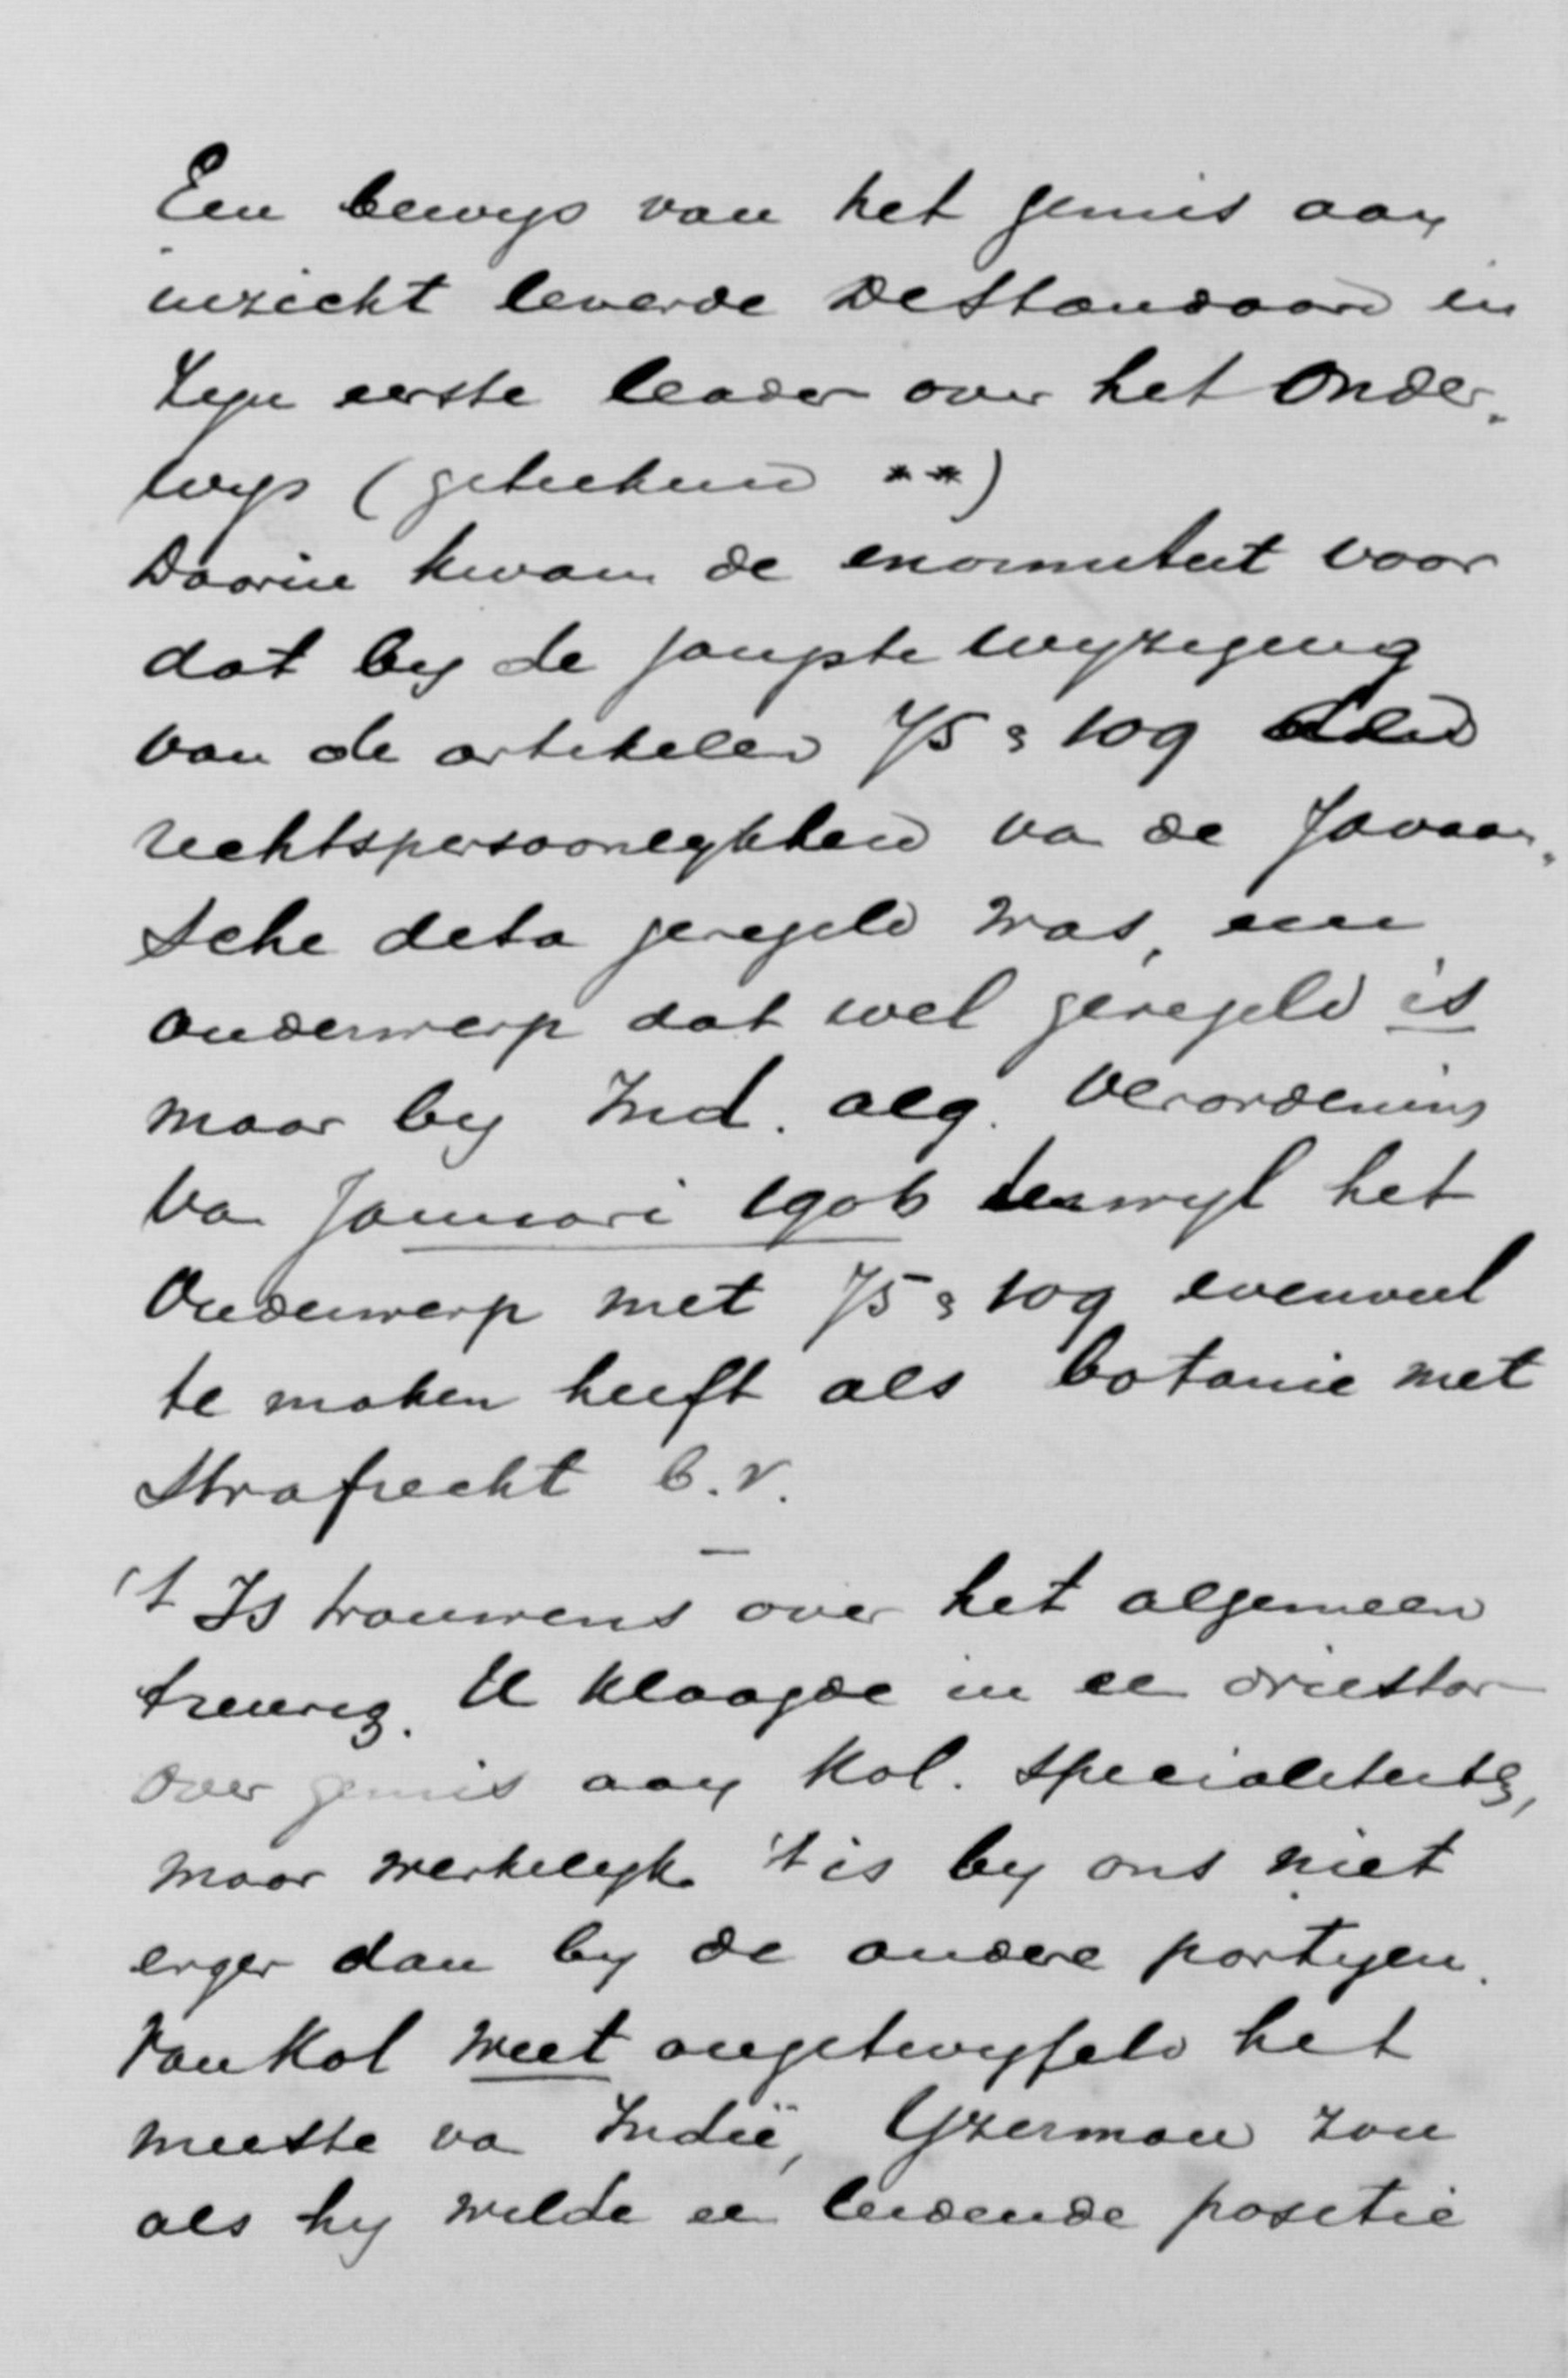 Een bewys van het gemis aan
inzicht leverde De Standaard in
zyn eerste leader over het Onder-
wys (geteekend **)
Daarin kwam de enormiteit voor
dat by de jongste wyziging
van de artikelen 75 & 109 de
rechtspersoonlykheid va de Javaan-
sche desa geregeld was, een
onderwerp dat wel geregeld is
maar by Ind. alg. verordening
va Januari 1906 terwyl het
Onderwerp met 75 & 109 evenveel
te maken heeft als botanie met
Strafrecht b.v.
—
't Is trouwens over het algemeen
treurig. U klaagde in ee driestar
over gemis aan Kol. specialiteitg,
maar werkelyk 't is by ons niet
erger dan by de andere partyen.
Van Kol weet ongetwyfeld het
meeste va Indië, Yzerman zou
als hy wilde ee leidende positie